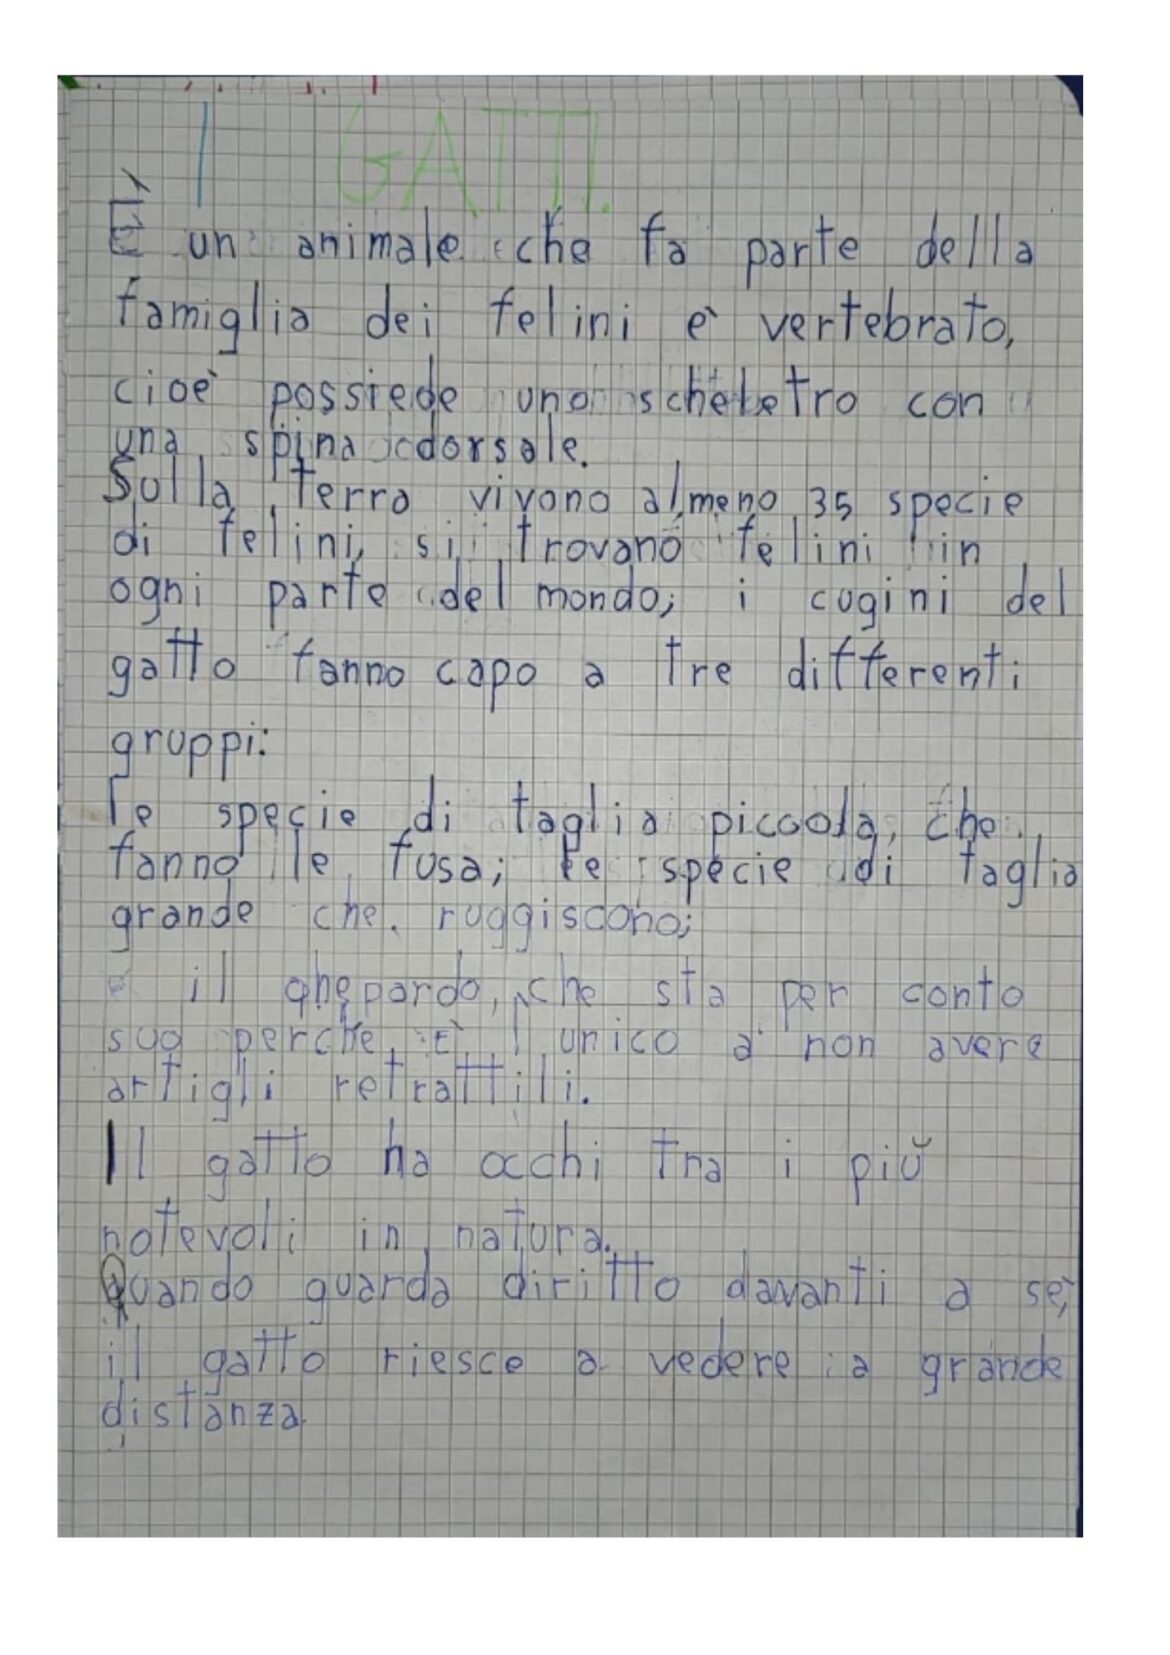 I GATTI.
È un animale che fa parte della
famiglia dei felini è vertebrato,
cioè possiede uno scheletro con
una spina dorsale.
Sulla Terra vivono almeno 35 specie
di felini, si trovano felini in
ogni parte del mondo; i cugini del
gatto fanno capo a tre differenti
gruppi:
le specie di taglia piccola, che
fanno le fusa; le specie di taglia
grande che ruggiscono;
e il ghepardo, che sta per conto
suo perche è l unico a non avere
artigli retrattili.
Il gatto ha occhi tra i più
notevoli in natura.
quando guarda diritto davanti a sè,
il gatto riesce a vedere a grande
distanza